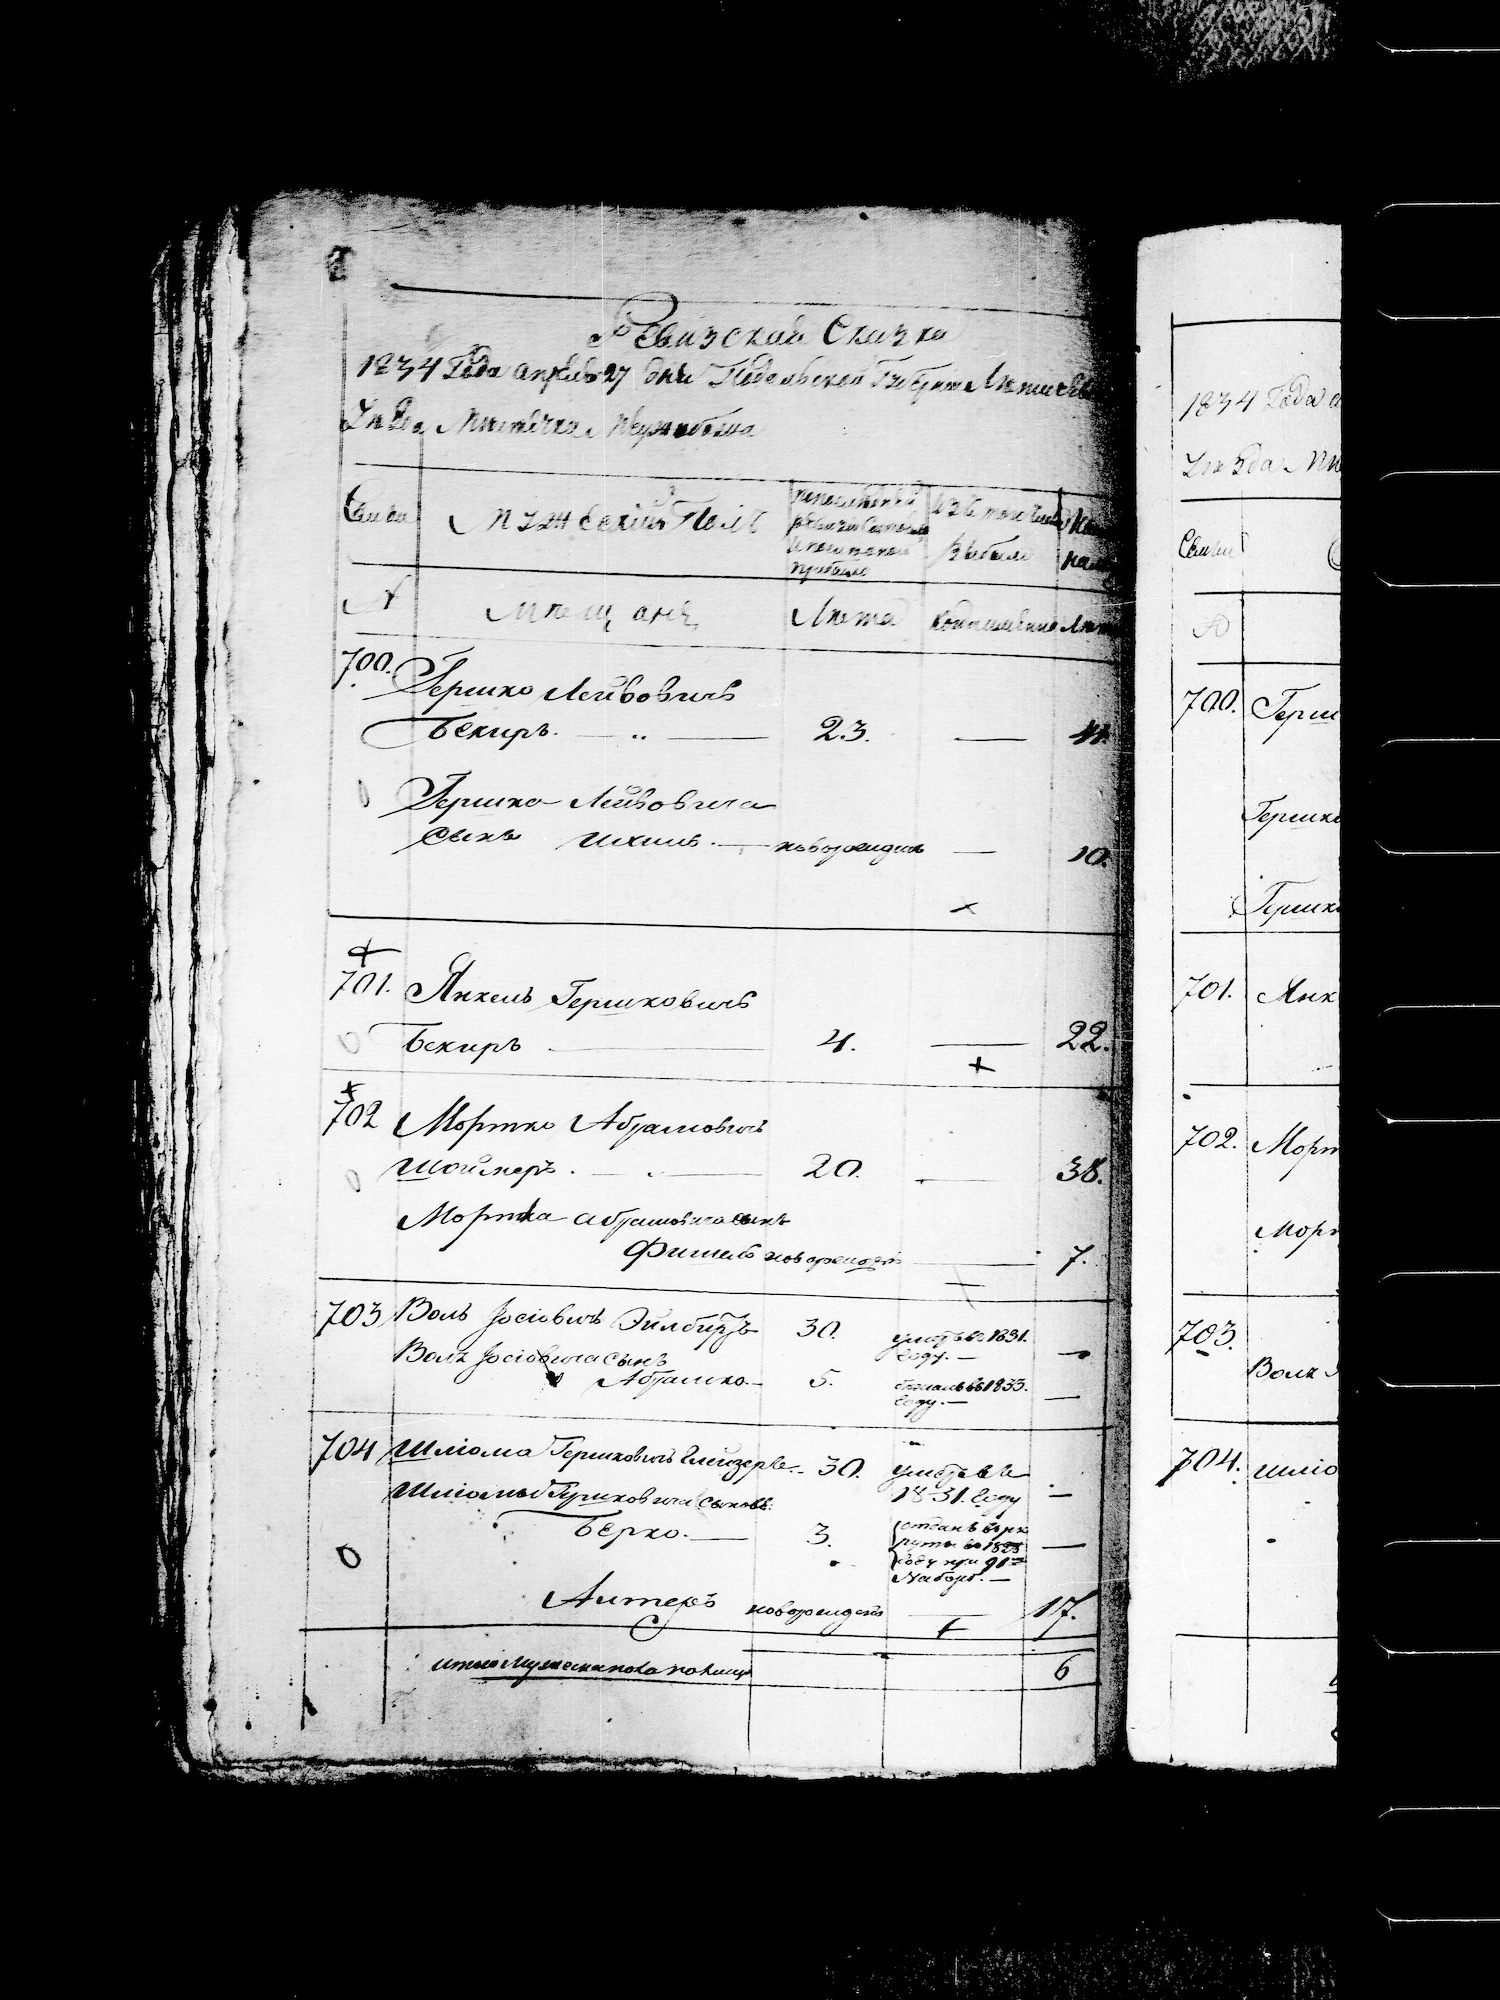 Ревизская Сказка
1834 Года апреля 27 дня Подольской Губерни Летичев
Уезда Местечка Межибожа
Семьи
Мужеский Полъ
А
Мещане
Лета
Лет
700.
Гершко Лейбовичъ
Бекиръ. — „ — 23. — 41.
Гершка Лейбовича
сынъ Ихилъ. — новорожденъ — 10.
701. Янкель Гершковичъ
Бекиръ — 4. — 22.
702 Мортко Абрамовичъ
Шойнеръ. — 20. — 38.
Мортка Абрамовича сынъ
Фишель новорожденъ — 7.
703 Волъ Іосіовичъ 30. умеръ въ 1831. году. —
Волъ Іосіовича сынъ
Абрамко — 5. бежалъ въ 1833. году. —
704 Шліома Гершковичъ Глейзеръ — 30. умеръ въ
1831. году —
Шліомы Гершковича сыновья:
Берко. — 3. отданъ въ рек
руты въ 1828
году при 91м
Наборе. —
Алтеръ новорожденъ — 17.
итого Мужеска пола на лицо 6
1834 Года а
Уезда Ме
Семьи
700. Герш
Гершк
Гершк
701. Янк
702. Морт
Морт
703.
Волк
704. Шліо